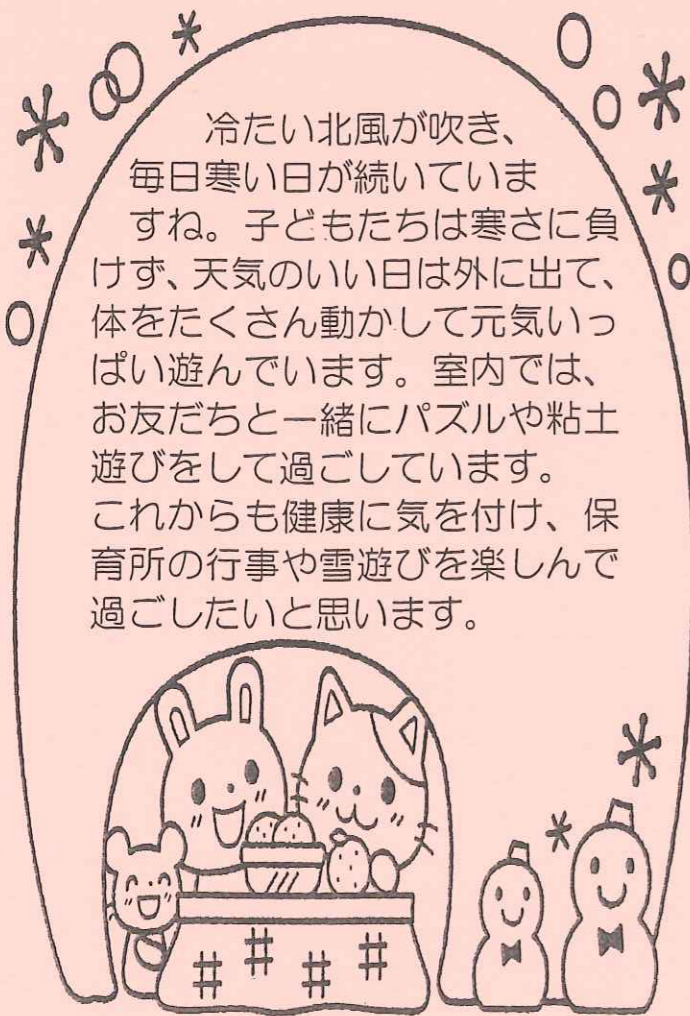 冷たい北風が吹き、
毎日寒い日が続いていま
すね。子どもたちは寒さに負
けず、天気のいい日は外に出て、
体をたくさん動かして元気いっ
ぱい遊んでいます。室内では、
お友だちと一緒にパズルや粘土
遊びをして過ごしています。
これからも健康に気を付け、保
育所の行事や雪遊びを楽しんで
過ごしたいと思います。